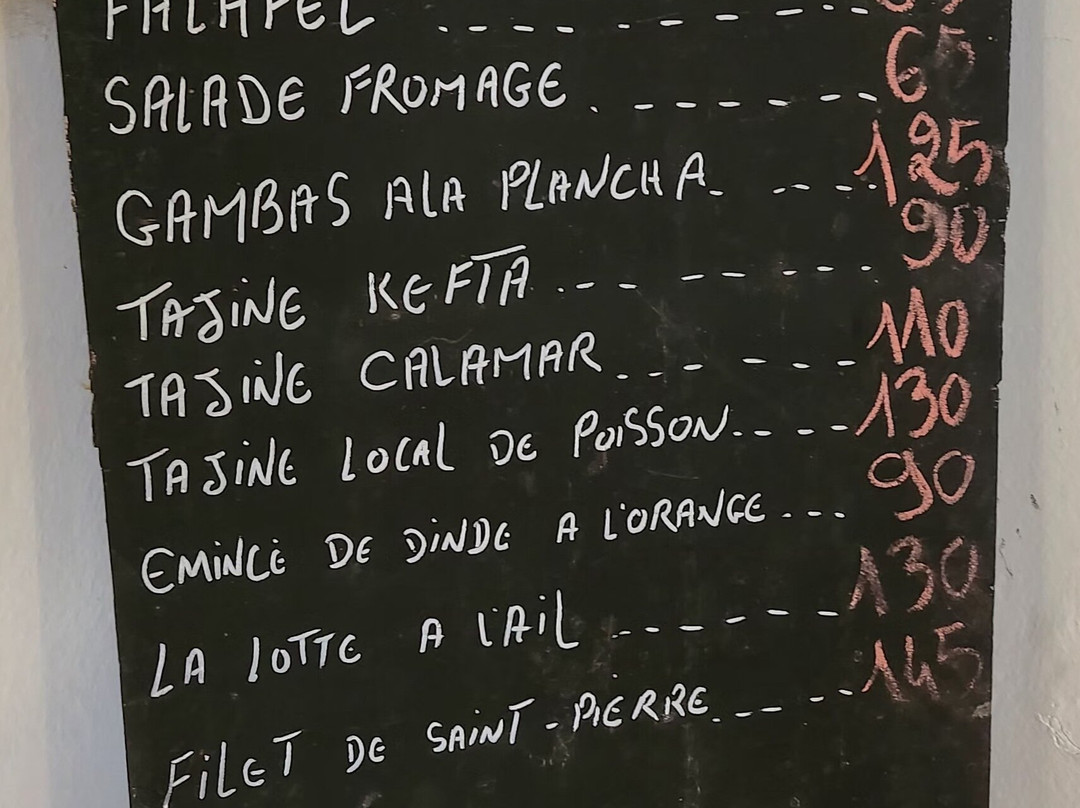 FALAFEL - - - - - - - - -
SALADE FROMAGE . - - - - - - - 65
GAMBAS A LA PLANCHA - - - - - 125
TAJINE KEFTA . - - - - - - - 90
TAJINE CALAMAR . - - - - - 110
TAJINE LOCAL DE POISSON - - - - 130
EMINCÉ DE DINDE A L'ORANGE - - - 90
LA LOTTE A L'AIL - - - - - - - 130
FILET DE SAINT-PIERRE - - - - - 145